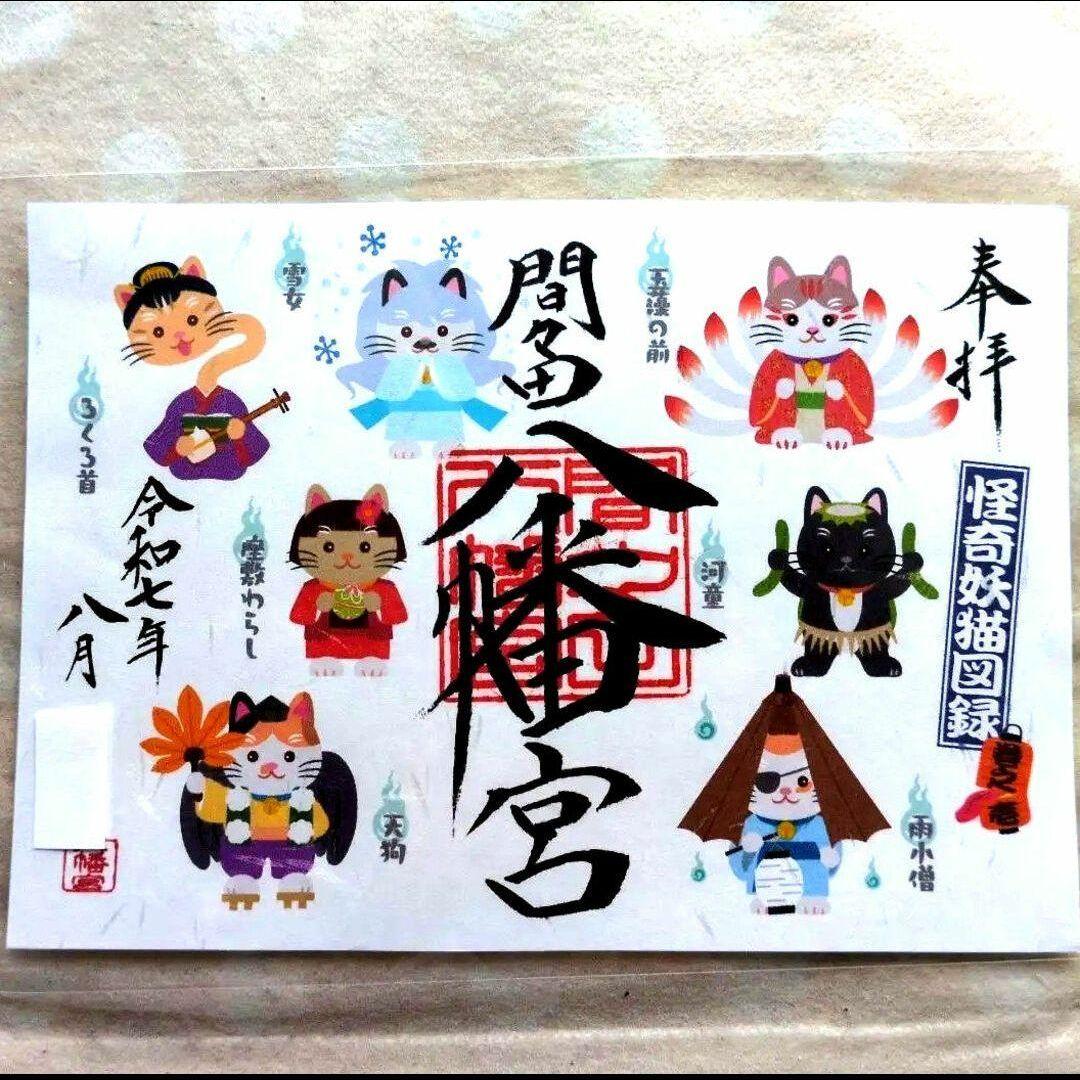 奉拝
怪奇妖猫図録
玉藻の前
河童
雨小僧
間々田八幡宮
雪女
座敷わらし
天狗
ろくろ首
令和七年
八月
幡宮